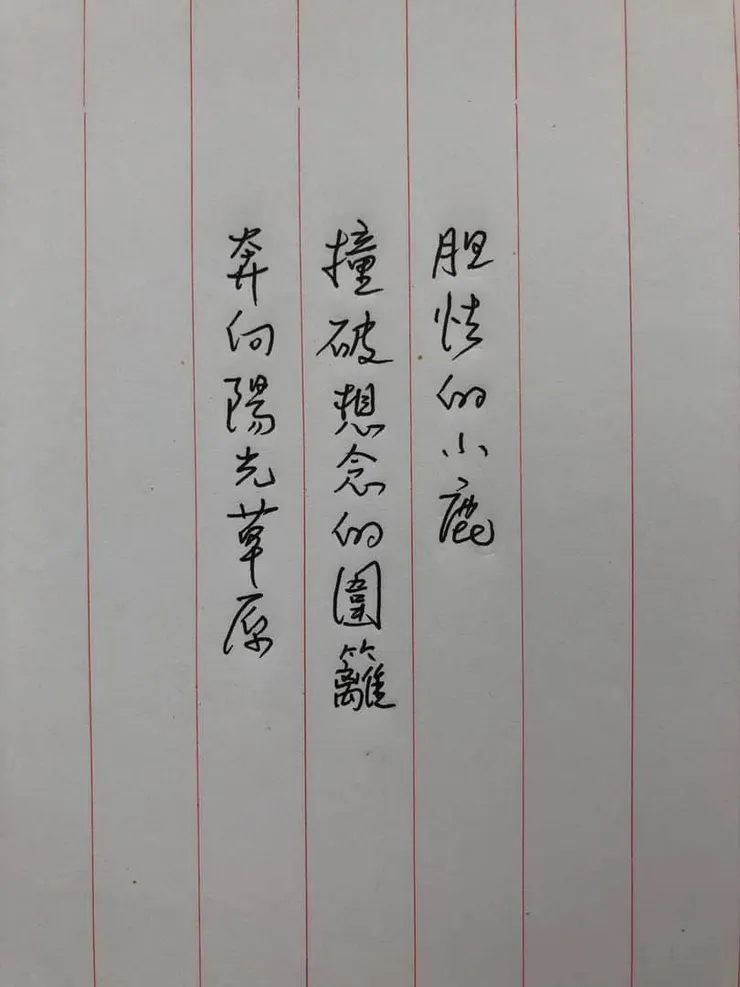 胆怯的小鹿
撞破想念的圍籬
奔向陽光草原